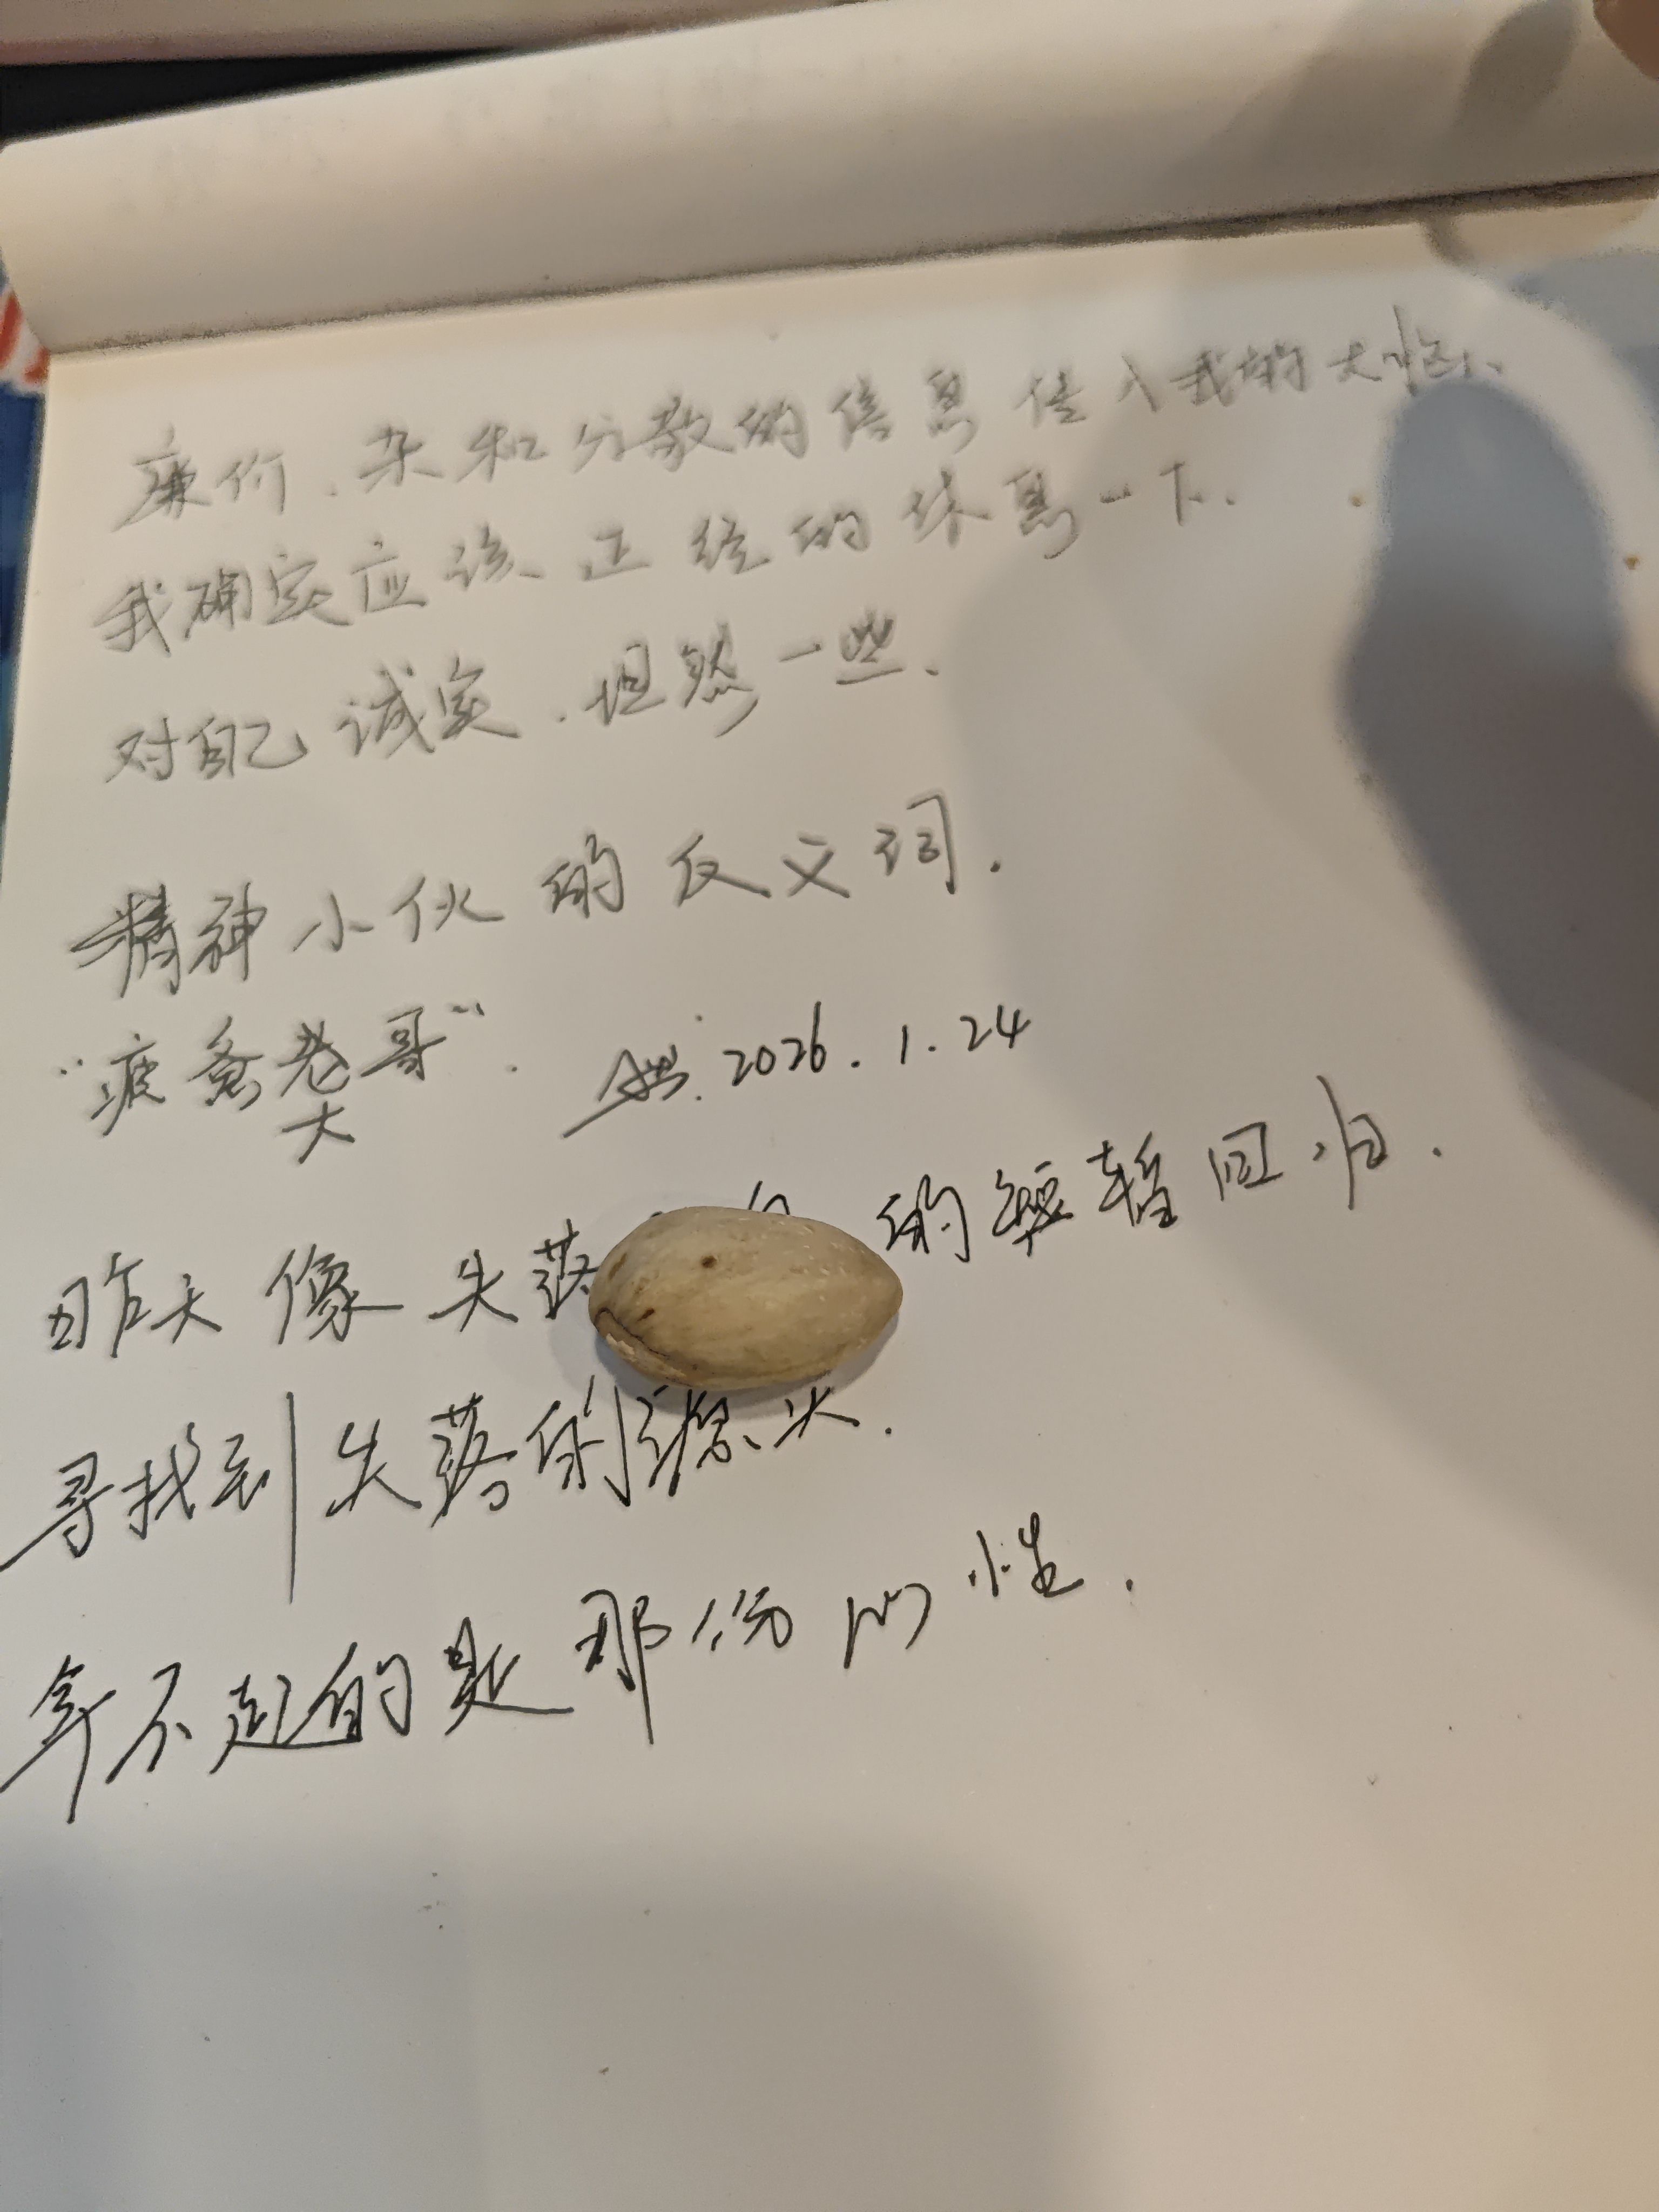 廉价、杂和分散的信息传入我的大脑、
我确实应该正经的休息一下.
对自己诚实、坦然一些、
精神小伙的反义词.
"疲惫老哥". 2026.1.24
大
昨天像失落 的短暂回归.
寻找到失落的源头.
弃不起的是那份心性.